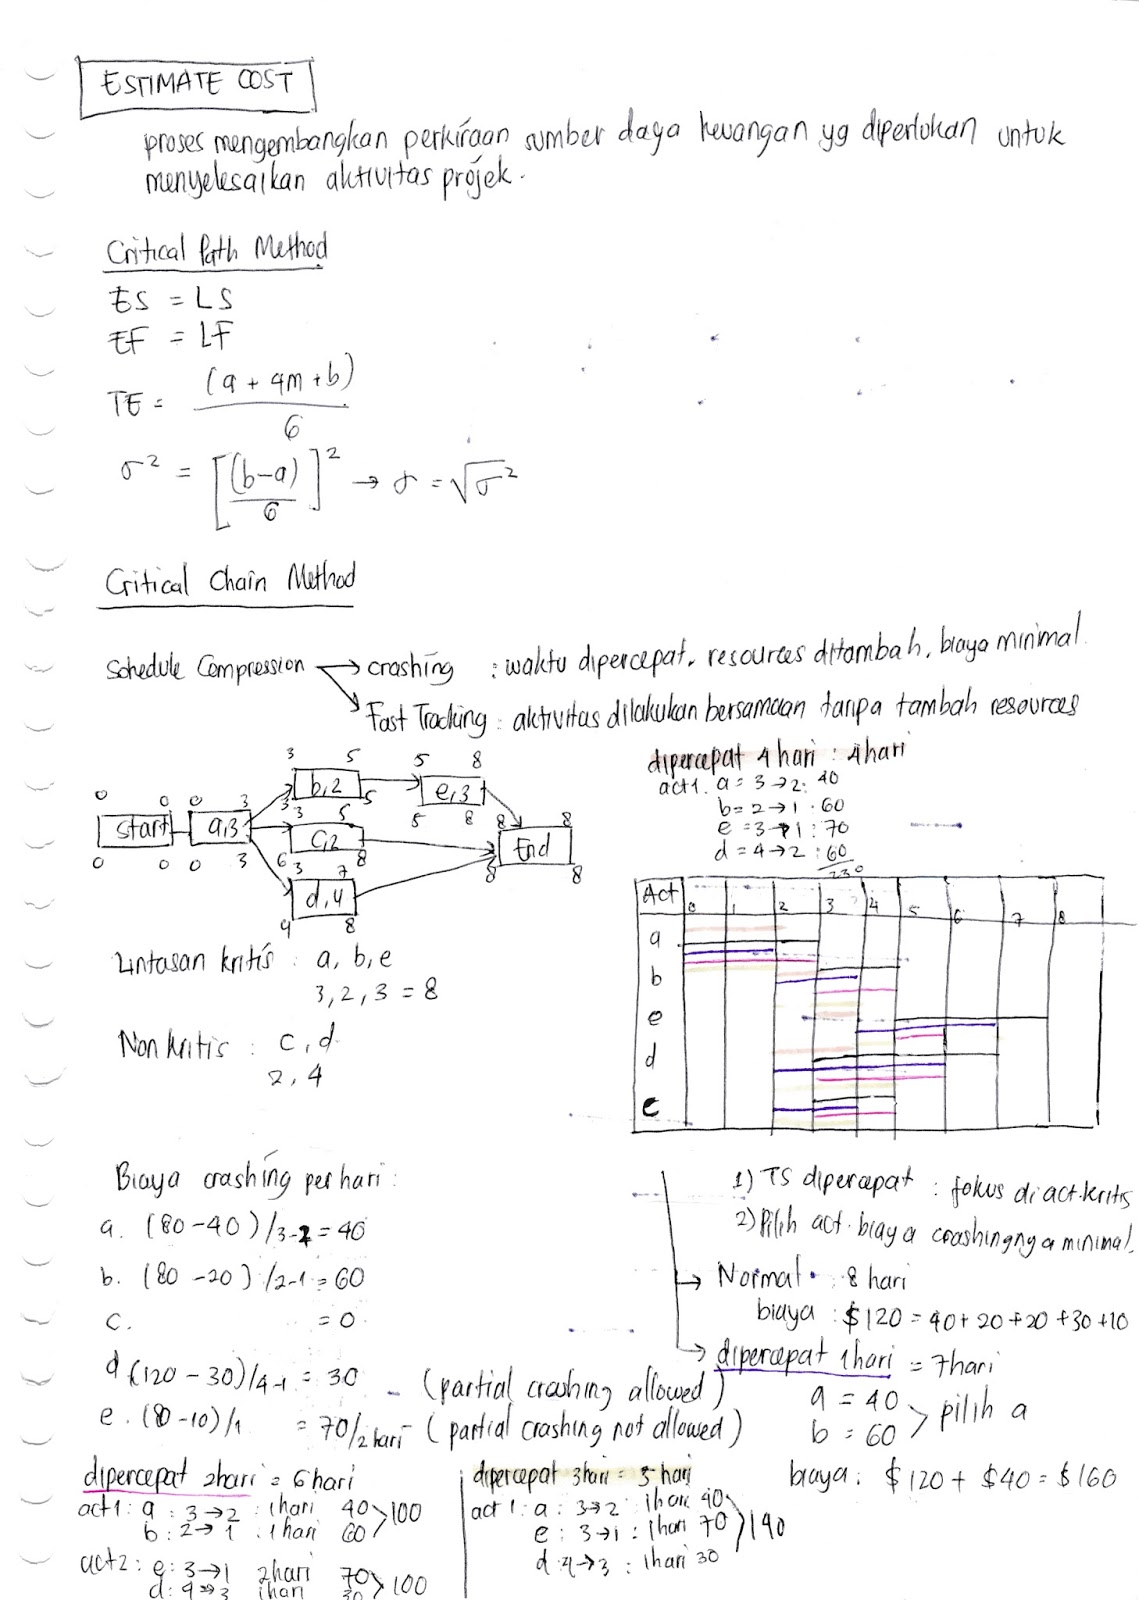 ESTIMATE COST
proses mengembangkan perkiraan sumber daya keuangan yg diperlukan untuk
menyelesaikan aktivitas projek.
Critical Path Method
ES = LS
EF = LF
TE = (a + 4m + b)
6
σ² = [(b-a)/6]² → σ = √σ²
Critical Chain Method
Schedule Compression → crashing : waktu dipercepat, resources ditambah, biaya minimal.
Fast Tracking : aktivitas dilakukan bersamaan tanpa tambah resources
3 5 5 8
b,2 e,3
3 5 5 8
0 0 0 3
start a,3
0 0 0 3
3 5
c,2
6 8
8 8
End
8 8
3 7
d,4
4 8
dipercepat 4 hari : 4 hari
act1. a = 3→2: 40
b = 2→1 : 60
e = 3→1 : 70
d = 4→2 : 60
230
Act 0 1 2 3 4 5 6 7 8
a
b
e
d
c
Lintasan kritis : a, b, e
3, 2, 3 = 8
Non kritis : c, d
2, 4
Biaya crashing per hari :
a. (80-40)/3-2 = 40
b. (80-20)/2-1 = 60
c. = 0
d (120-30)/4-1 = 30 - (partial crashing allowed)
e. (80-10)/1 = 70/2 hari - (partial crashing not allowed)
1) TS dipercepat : fokus di act.kritis
2) Pilih act. biaya crashingnya minimal.
→ Normal : 8 hari
biaya : $120 = 40+20+20+30+10
→ dipercepat 1 hari = 7 hari
a = 40
b = 60 > pilih a
biaya : $120 + $40 = $160
dipercepat 2 hari = 6 hari
act1 : a : 3→2 : 1 hari 40
b : 2→1 : 1 hari 60 > 100
act2 : e : 3→1 2 hari 70
d : 4→3 1 hari 30 > 100
dipercepat 3 hari = 5 hari
act 1 : a : 3→2 : 1 hari 40
e : 3→1 : 1 hari 70 > 140
d : 4→3 : 1 hari 30